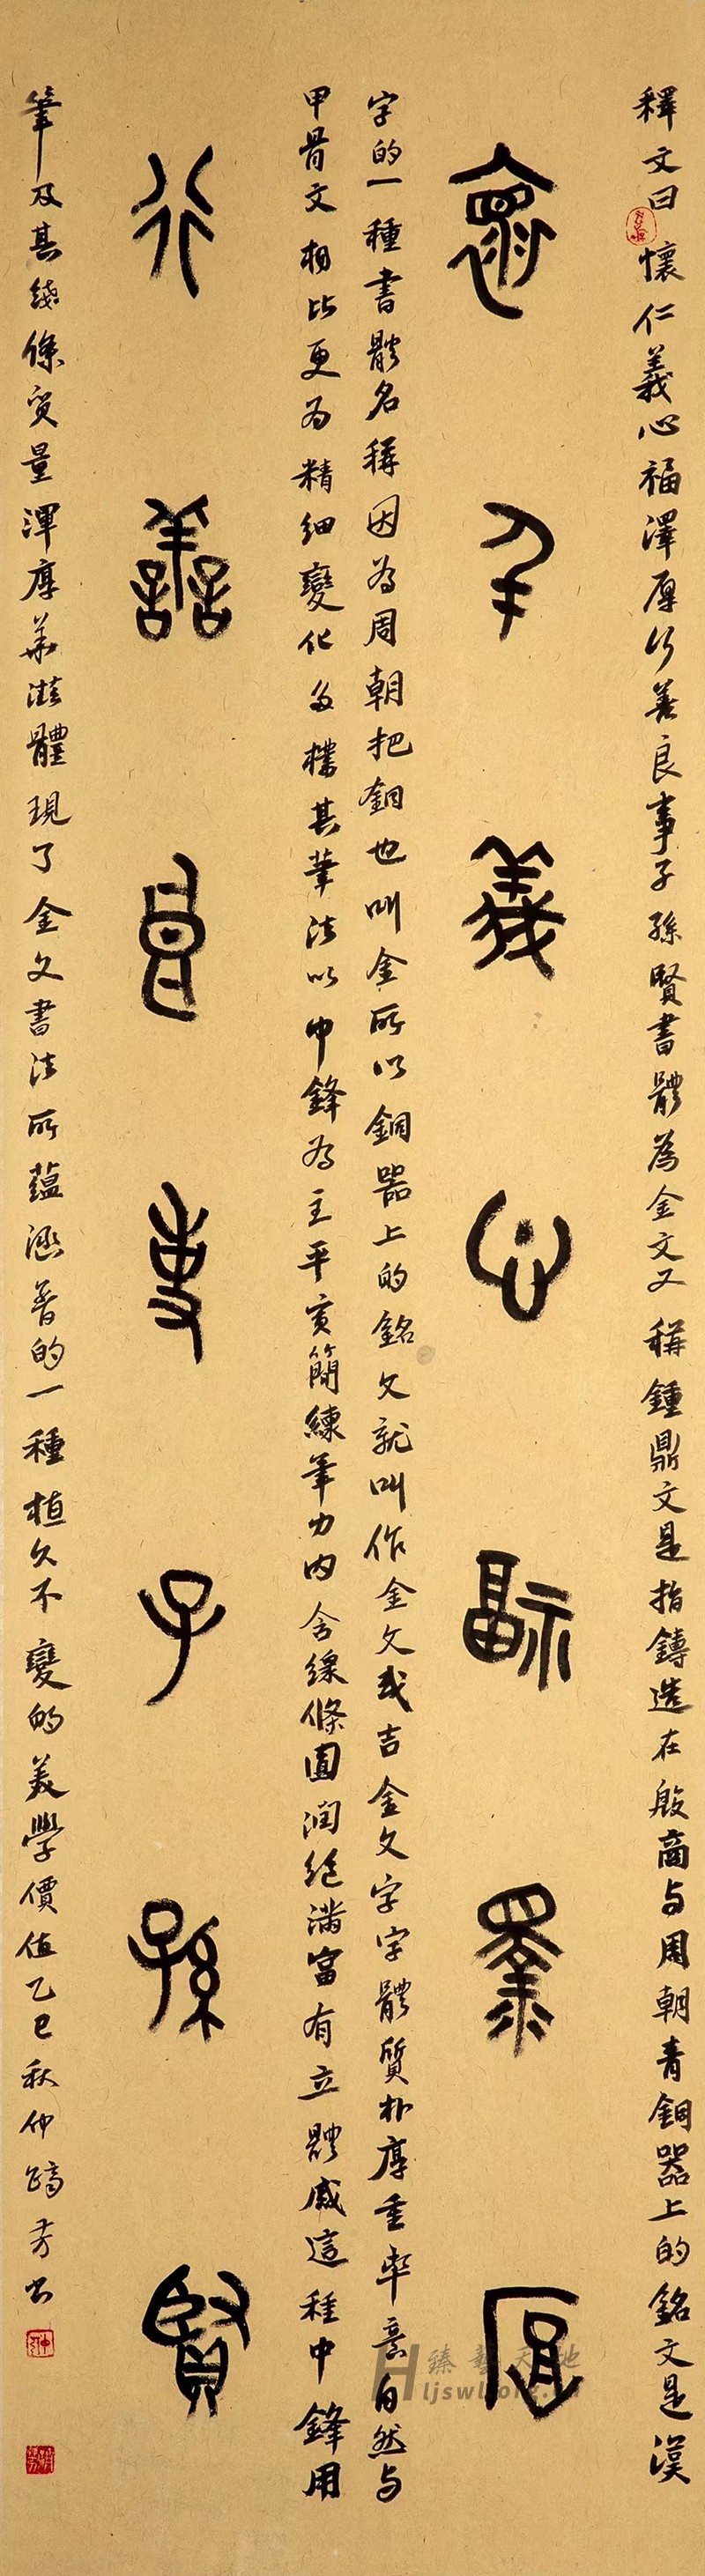 釋文曰懷仁義心福澤厚行善良事子孫賢書體為金文又稱鍾鼎文是指鑄造在殷商与周朝青銅器上的銘文是漢
懷仁義心福澤厚
字的一種書體名稱因为周朝把銅也叫金所以銅器上的銘文就叫作金文或吉金文字字體質朴厚重率意自然与
甲骨文相比更为精细變化多樣其筆法以中鋒为主平实簡練筆力内含線條圓润饱滿富有立體感這種中鋒用
行善良事子孫賢
筆及其线條质量渾厚华滋體現了金文書法所蕴涵着的一種恒久不變的美學價值乙巳秋仲
臻藝天地